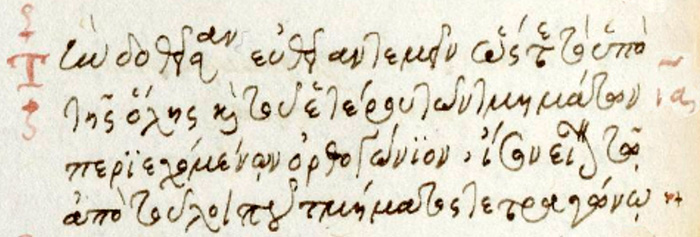 Τὴν δοθεῖσαν εὐθεῖαν τεμεῖν ὥστε τὸ ὑπὸ
τῆς ὅλης καὶ τοῦ ἑτέρου τῶν τμημάτων ια
περϊεχόμενον ὀρθογώνϊον, ἴσον εἶναι τῷ
ἀπὸ τοῦ λοιποῦ τμήματος τετραγώνῳ